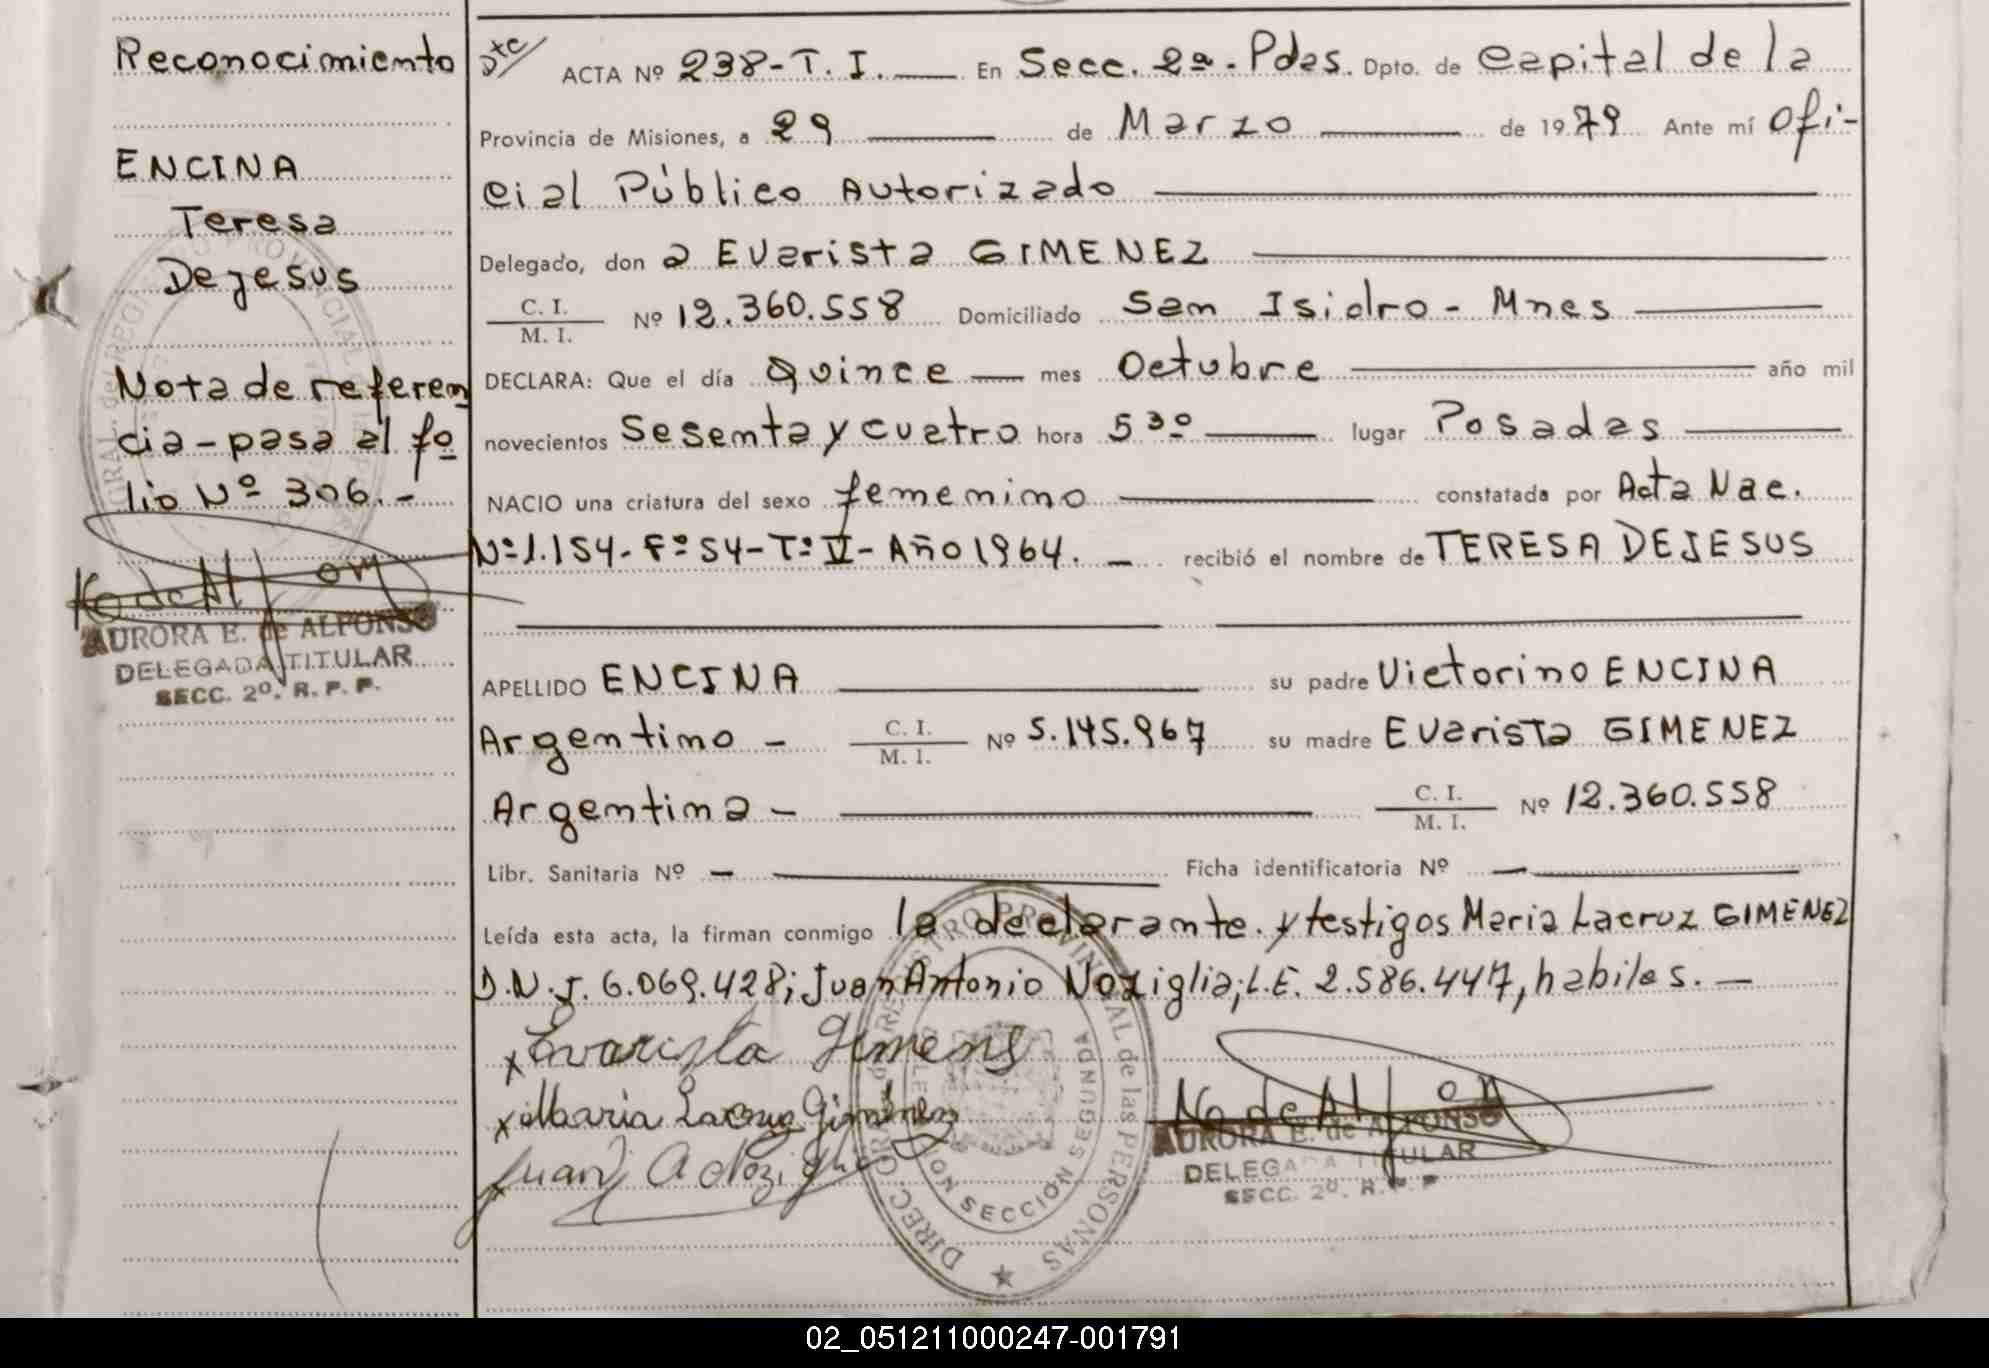 Reconocimiento
ENCINA
Teresa
Dejesus
Nota de referen
cia-pasa al fo
lio Nº 306.-
AURORA E. de ALFONSO
DELEGADA TITULAR
SECC. 2º. R. P. P.
Dto/ ACTA Nº 238-T. I. En Secc. 2ª. Pdas. Dpto. de Capital de la
Provincia de Misiones, a 29 de Marzo de 1979 Ante mí Ofi-
cial Público Autorizado
Delegado, don a Evarista GIMENEZ
C. I. / M. I. Nº 12.360.558 Domiciliado San Isidro - Mnes
DECLARA: Que el día Quince mes Octubre año mil
novecientos Sesenta y cuatro hora 5 30 lugar Posadas
NACIO una criatura del sexo femenino constatada por Acta Nac.
Nº 1.154- Fº 54- Tº IV- Año 1964. - recibió el nombre de TERESA DEJESUS
APELLIDO ENCINA su padre Victorino ENCINA
Argentino - C. I. / M. I. Nº 5.145.967 su madre Evarista GIMENEZ
Argentina - C. I. / M. I. Nº 12.360.558
Libr. Sanitaria Nº - Ficha identificatoria Nº -
Leída esta acta, la firman conmigo la declarante. y testigos Maria Lacruz GIMENEZ
D.N.I. 6.069.428; Juan Antonio Noziglia; L.E. 2.586.447, habiles. -
x Evarista Gimenes
x Maria Lacruz Giménez
Juan A Nozigl
DIREC. GRAL. del REGISTRO PROVINCIAL de las PERSONAS
DELEGACION SECCION SEGUNDA
AURORA E. de ALFONSO
DELEGADA TITULAR
SECC. 2º. R. P. P
02_051211000247-001791